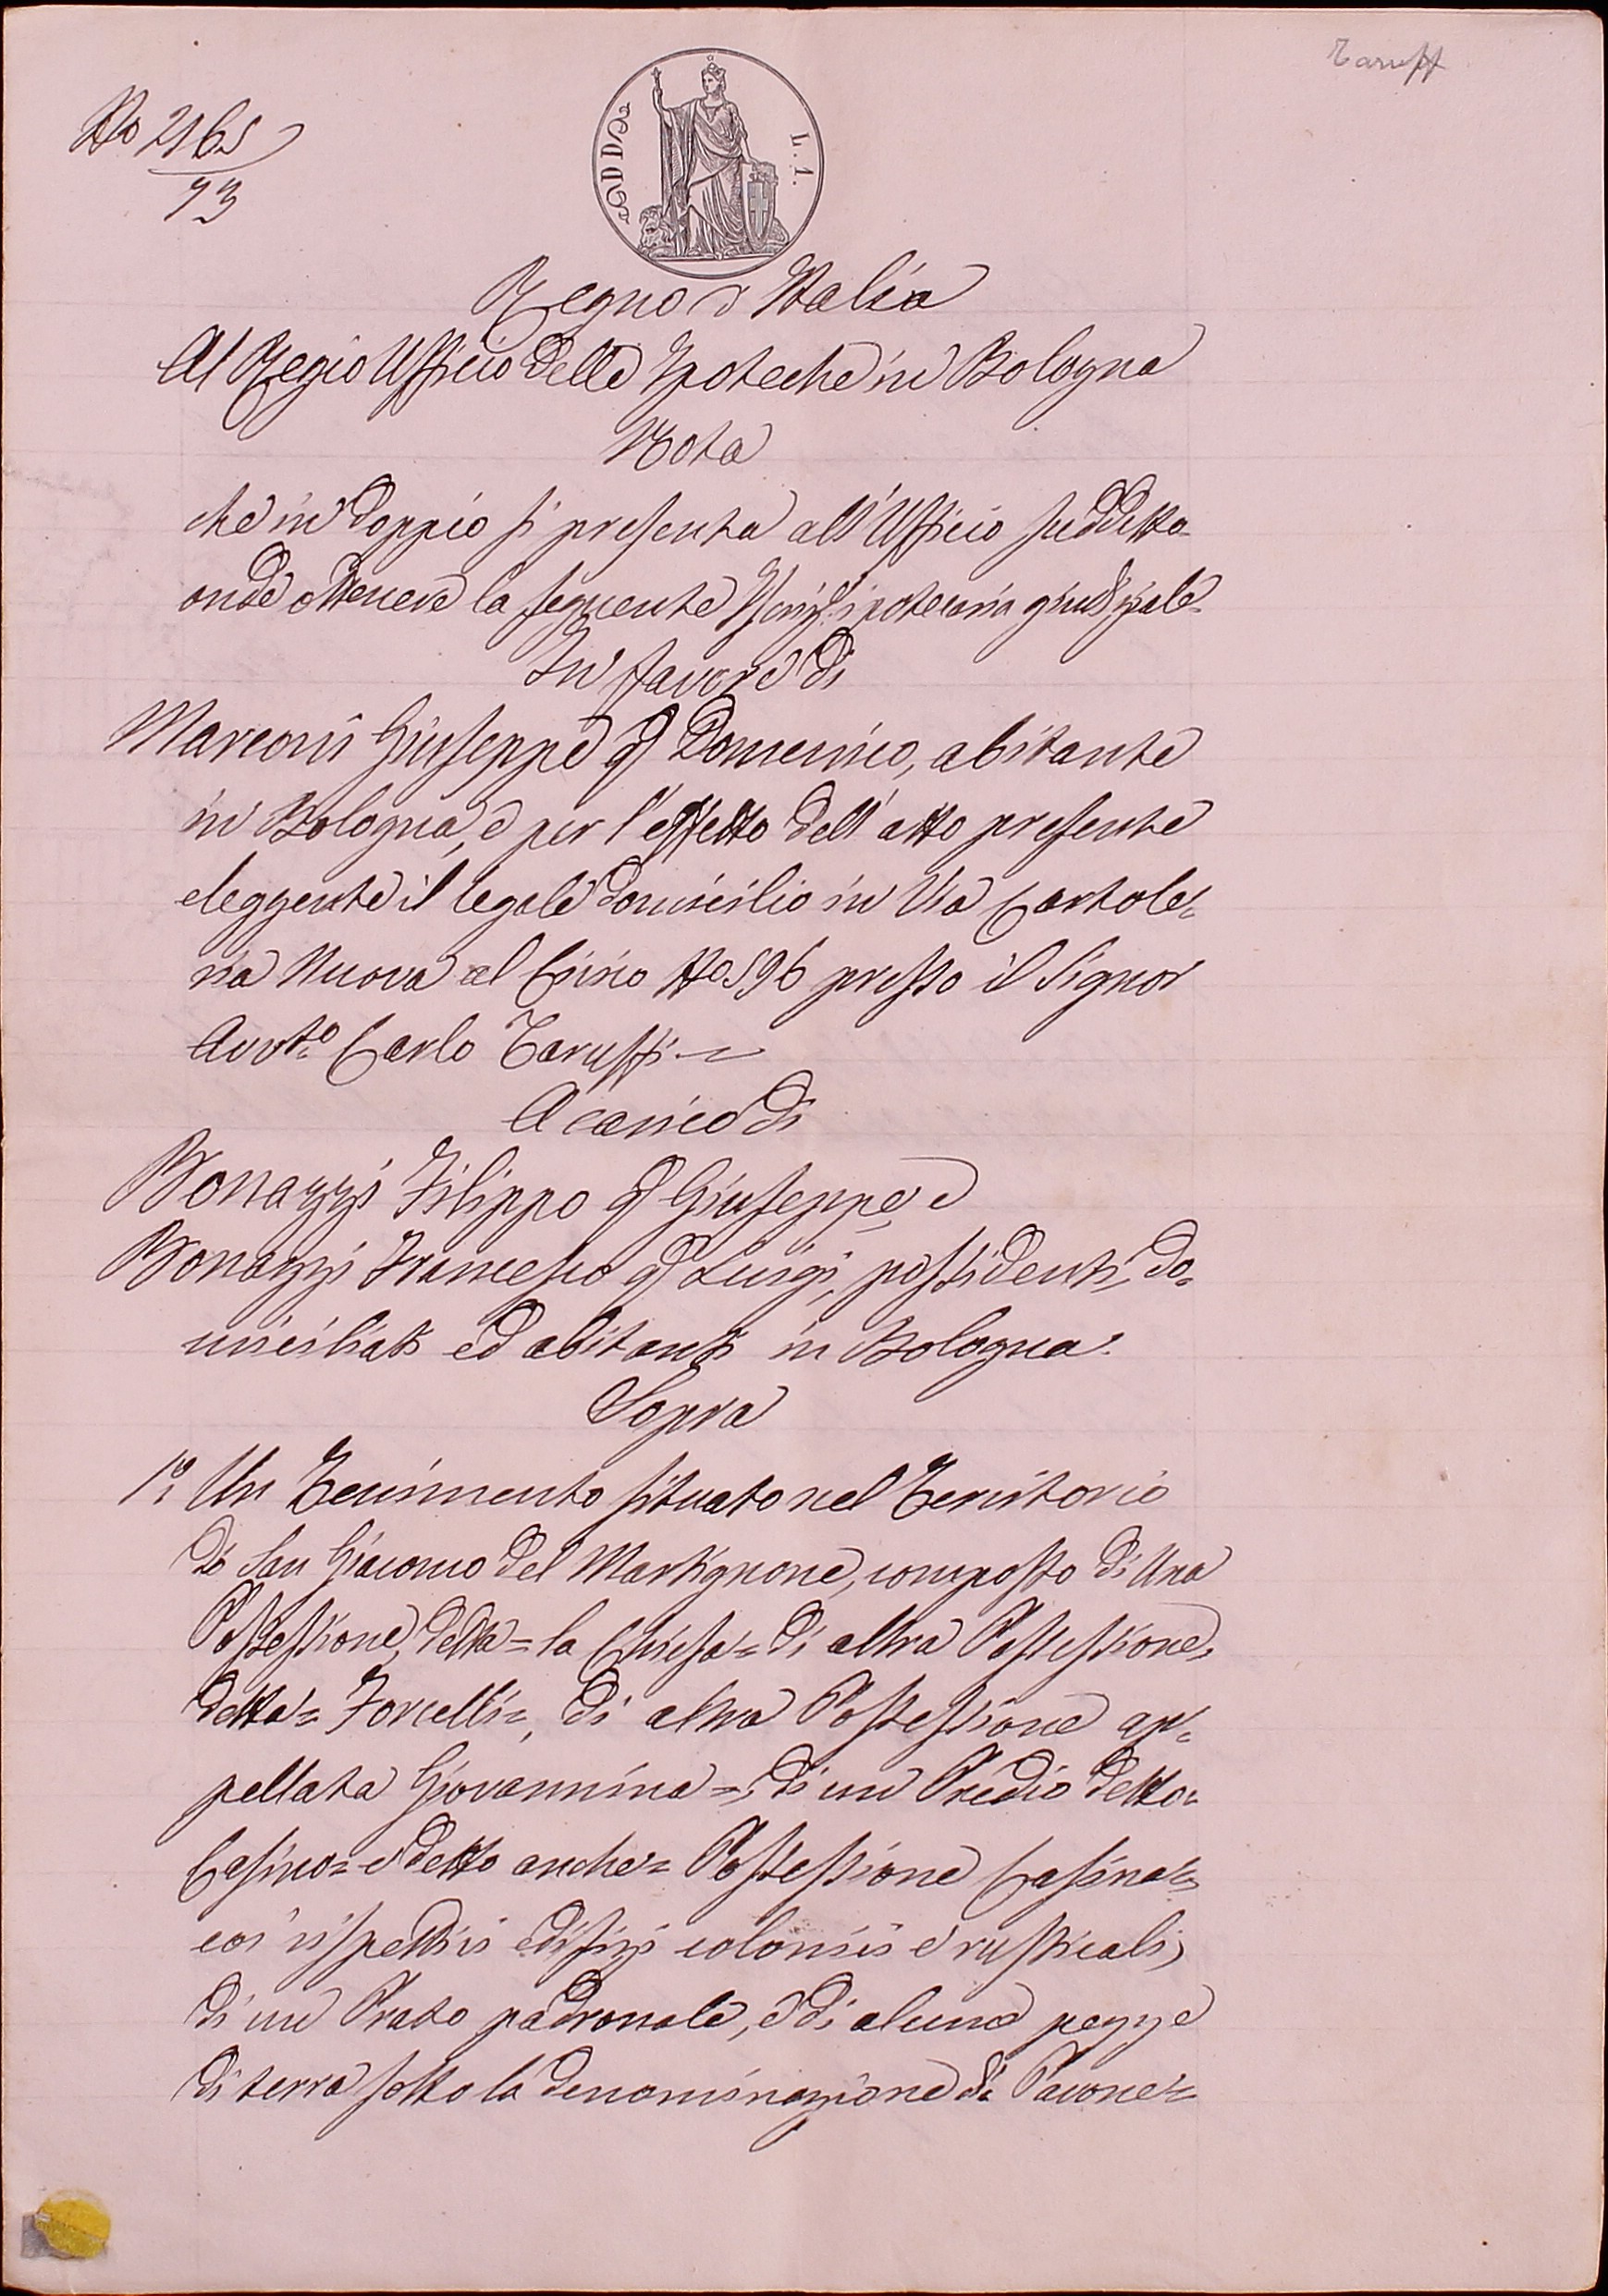 Taruff
No 2165
73
L. 1.
Regno d'Italia
Al Regio Ufficio delle Ipoteche in Bologna
Nota
che in doppio si presenta all'Ufficio suddetto
onde ottenere la seguente Iscriz: ipotecaria giudiziale
In favore di
Marconi Giuseppe qm Domenico, abitante
in Bologna, e per l'effetto dell'atto presente
eleggente il legale domicilio in Via Cartole=
ria Nuova al Civico No 596 presso il Signor
Avvto Carlo Taruffi
A carico di
Bonazzi Filippo qm Giuseppe, e
Bonazzi Francesco qm Luigi, possidenti, do=
miciliati ed abitanti in Bologna.
Sopra
1o Un Tenimento situato nel Territorio
di San Giacomo del Martignone, composto di Una
Possessione, detta = la Chiesa = di altra Possessione,
detta = Forcelli =, di altra Possessione ap=
pellata Giovannina =, di un Predio detto =
Casino = e detto anche = Possessione Casina =,
coi rispettivi edifizi colonici e rusticali,
di un Prato padronale, e di alcune pezze
di terra sotto la denominazione di Pavone =